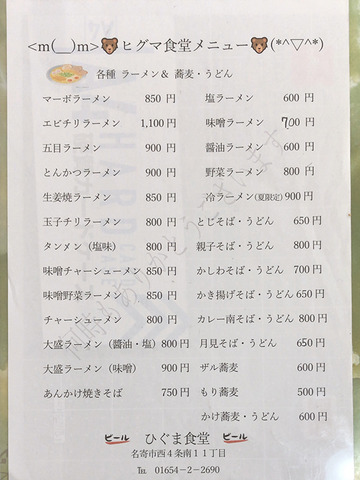 <m(__)m>🐻ヒグマ食堂メニュー🐻(*^▽^*)
各種 ラーメン& 蕎麦・うどん
マーボラーメン 850 円
エビチリラーメン 1,100 円
五目ラーメン 900 円
とんかつラーメン 900 円
生姜焼ラーメン 850 円
玉子チリラーメン 800 円
タンメン（塩味） 800 円
味噌チャーシューメン 850 円
味噌野菜ラーメン 850 円
チャーシューメン 800 円
大盛ラーメン（醬油・塩）800 円
大盛ラーメン（味噌） 900 円
あんかけ焼きそば 750 円
塩ラーメン 600 円
味噌ラーメン 700 円
醬油ラーメン 600 円
野菜ラーメン 800 円
冷ラーメン(夏限定) 900 円
とじそば・うどん 650 円
親子そば・うどん 800 円
かしわそば・うどん 700 円
かき揚げそば・うどん 650 円
カレー南そば・うどん 800 円
月見そば・うどん 650 円
ザル蕎麦 600 円
もり蕎麦 500 円
かけ蕎麦・うどん 600 円
ビール ひぐま食堂 ビール
名寄市西４条南１１丁目
℡ 01654-2-2690